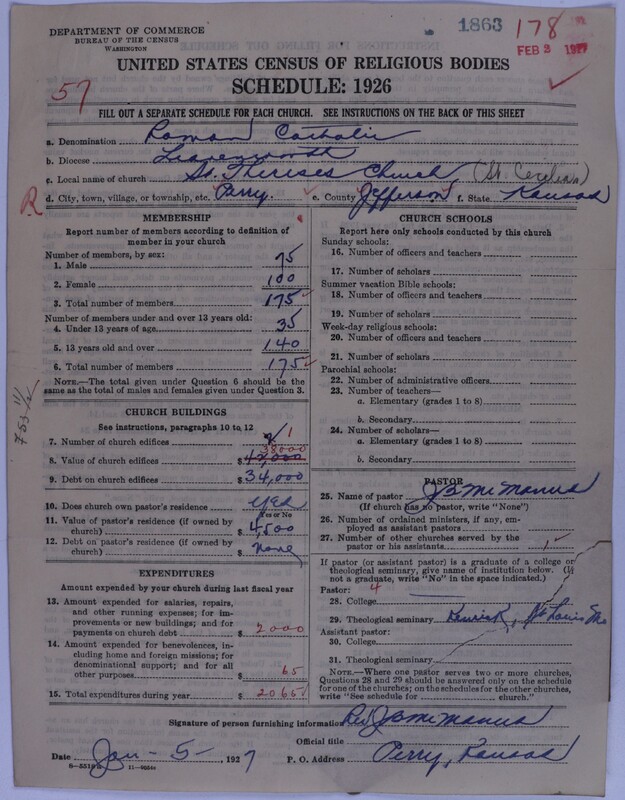 DEPARTMENT OF COMMERCE
BUREAU OF THE CENSUS
WASHINGTON
1863
178
FEB 3 1927
UNITED STATES CENSUS OF RELIGIOUS BODIES
SCHEDULE: 1926
57
FILL OUT A SEPARATE SCHEDULE FOR EACH CHURCH. SEE INSTRUCTIONS ON THE BACK OF THIS SHEET
a. Denomination Roman Catholic
b. Diocese Leavenworth
c. Local name of church St. Thereses Church (St. Cecilia's)
R d. City, town, village, or township, etc. Perry. e. County Jefferson f. State Kansas
MEMBERSHIP
Report number of members according to definition of member in your church
Number of members, by sex:
1. Male 75
2. Female 100
3. Total number of members 175
Number of members under and over 13 years old:
4. Under 13 years of age 35
5. 13 years old and over 140
6. Total number of members 175
NOTE.—The total given under Question 6 should be the
same as the total of males and females given under Question 3.
CHURCH BUILDINGS
See instructions, paragraphs 10 to 12
7. Number of church edifices 1
38000
8. Value of church edifices $
9. Debt on church edifices $ 34,000
10. Does church own pastor's residence yes
Yes or No
11. Value of pastor's residence (if owned by
church) $ 4,500
12. Debt on pastor's residence (if owned by
church) $ none
EXPENDITURES
Amount expended by your church during last fiscal year
13. Amount expended for salaries, repairs,
and other running expenses; for im-
provements or new buildings; and for
payments on church debt $ 2000
14. Amount expended for benevolences, in-
cluding home and foreign missions; for
denominational support; and for all
other purposes $ 65
15. Total expenditures during year $ 2065
CHURCH SCHOOLS
Report here only schools conducted by this church
Sunday schools:
16. Number of officers and teachers
17. Number of scholars
Summer vacation Bible schools:
18. Number of officers and teachers
19. Number of scholars
Week-day religious schools:
20. Number of officers and teachers
21. Number of scholars
Parochial schools:
22. Number of administrative officers
23. Number of teachers—
a. Elementary (grades 1 to 8)
b. Secondary
24. Number of scholars—
a. Elementary (grades 1 to 8)
b. Secondary
PASTOR
25. Name of pastor J B McManus
(If church has no pastor, write "None")
26. Number of ordained ministers, if any, em-
ployed as assistant pastors
27. Number of other churches served by the
pastor or his assistants 1
If pastor (or assistant pastor) is a graduate of a college or
theological seminary, give name of institution below. (If
not a graduate, write "No" in the space indicated.)
Pastor: 4
28. College
29. Theological seminary Kenrick, St Louis Mo
Assistant pastor:
30. College
31. Theological seminary
NOTE.—Where one pastor serves two or more churches,
Questions 28 and 29 should be answered only on the schedule
for one of the churches; on the schedules for the other churches,
write "See schedule for church."
Signature of person furnishing information Rev J B McManus
Official title
Date Jan - 5 -, 1927 P. O. Address Perry, Kansas